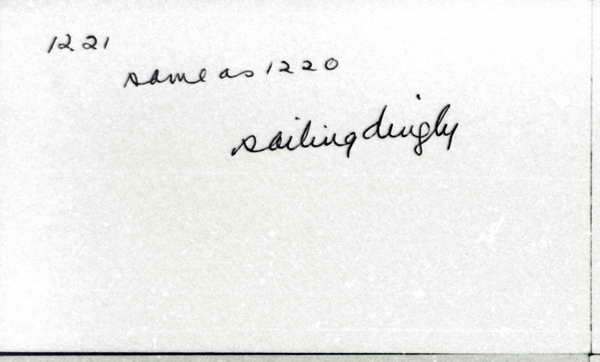 1221
same as 1220
sailing dingly